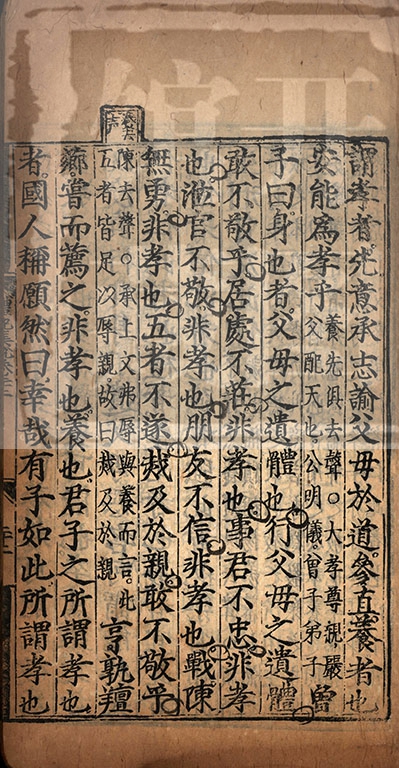 謂孝者先意承志諭父母於道參直養者也
安能為孝乎養先俱去聲○大孝尊親嚴父配天也公明儀曾子弟子曾
子曰身也者父母之遺體也行父母之遺體
敢不敬乎居處不莊非孝也事君不忠非孝
也涖官不敬非孝也朋友不信非孝也戰陳
無勇非孝也五者不遂烖及於親敢不敬乎
陳去聲○承上文弗辱與養而言此五者皆足以辱親故曰烖及於親亨孰羶
薌嘗而薦之非孝也養也君子之所謂孝也
者國人稱願然曰幸哉有子如此所謂孝也